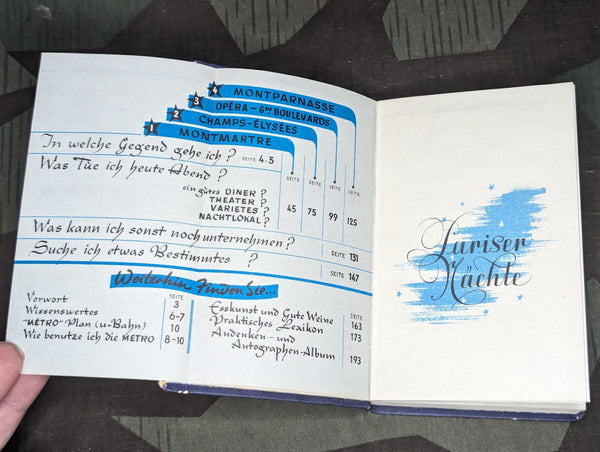 4 MONTPARNASSE
3 OPÉRA - Gds BOULEVARDS
2 CHAMPS-ÉLYSÉES
1 MONTMARTRE
In welche Gegend gehe ich? SEITE 4-5
Was Tue ich heute Abend?
SEITE SEITE SEITE SEITE
ein gutes DINER?
THEATER?
VARIETES?
NACHTLOKAL?
45 75 99 125
Was kann ich sonst noch unternehmen? 131
Suche ich etwas Bestimmtes? 147
Weiterhin Finden Sie...
SEITE
Vorwort 3
Wissenswertes 6-7
-MÉTRO-Plan (u-Bahn) 10
Wie benutze ich die METRO 8-10
SEITE
Esskunst und Gute Weine 163
Praktisches Lexikon 173
Andenken - und
Autographen-Album 193
Pariser
Nächte